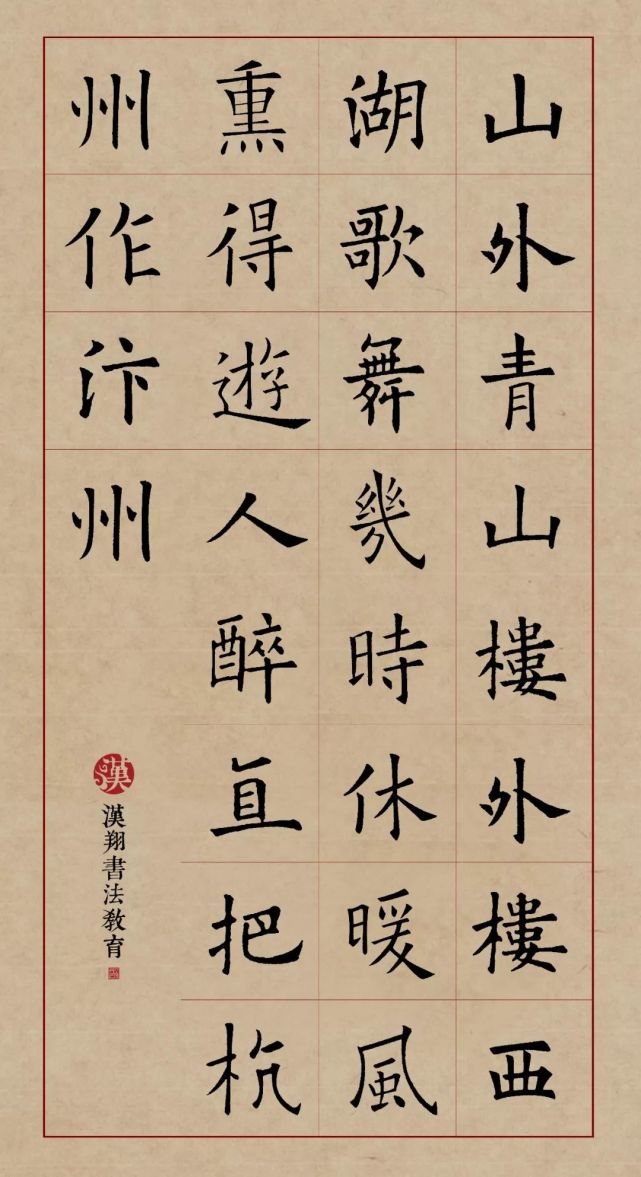 山外青山樓外樓西
湖歌舞幾時休暖風
熏得遊人醉直把杭
州作汴州
漢
漢翔書法教育